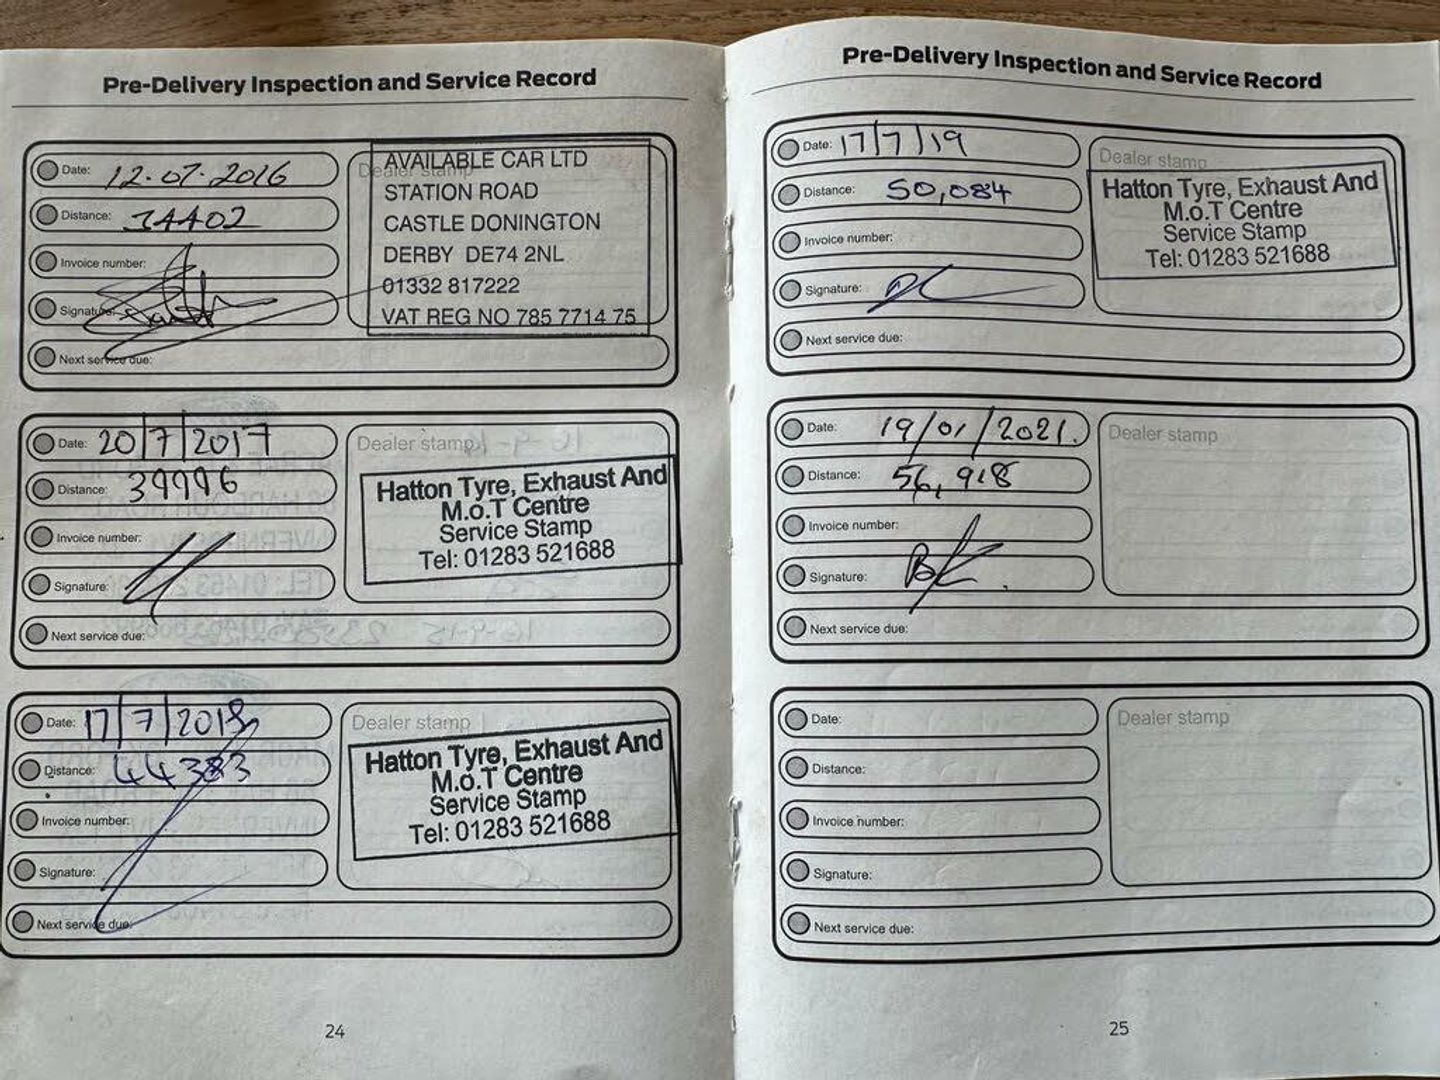 Pre-Delivery Inspection and Service Record
Date: 12.07.2016
Distance: 34402
Invoice number:
Signature:
Next service due:
Dealer stamp
AVAILABLE CAR LTD
STATION ROAD
CASTLE DONINGTON
DERBY DE74 2NL
01332 817222
VAT REG NO 785 7714 75
Date: 20/7/2017
Distance: 39996
Invoice number:
Signature:
Next service due:
Dealer stamp
Hatton Tyre, Exhaust And
M.o.T Centre
Service Stamp
Tel: 01283 521688
Date: 17/7/2018
Distance: 44383
Invoice number:
Signature:
Next service due:
Dealer stamp
Hatton Tyre, Exhaust And
M.o.T Centre
Service Stamp
Tel: 01283 521688
24
Pre-Delivery Inspection and Service Record
Date: 17/7/19
Distance: 50,084
Invoice number:
Signature:
Next service due:
Dealer stamp
Hatton Tyre, Exhaust And
M.o.T Centre
Service Stamp
Tel: 01283 521688
Date: 19/01/2021.
Distance: 56,918
Invoice number:
Signature:
Next service due:
Dealer stamp
Date:
Distance:
Invoice number:
Signature:
Next service due:
Dealer stamp
25